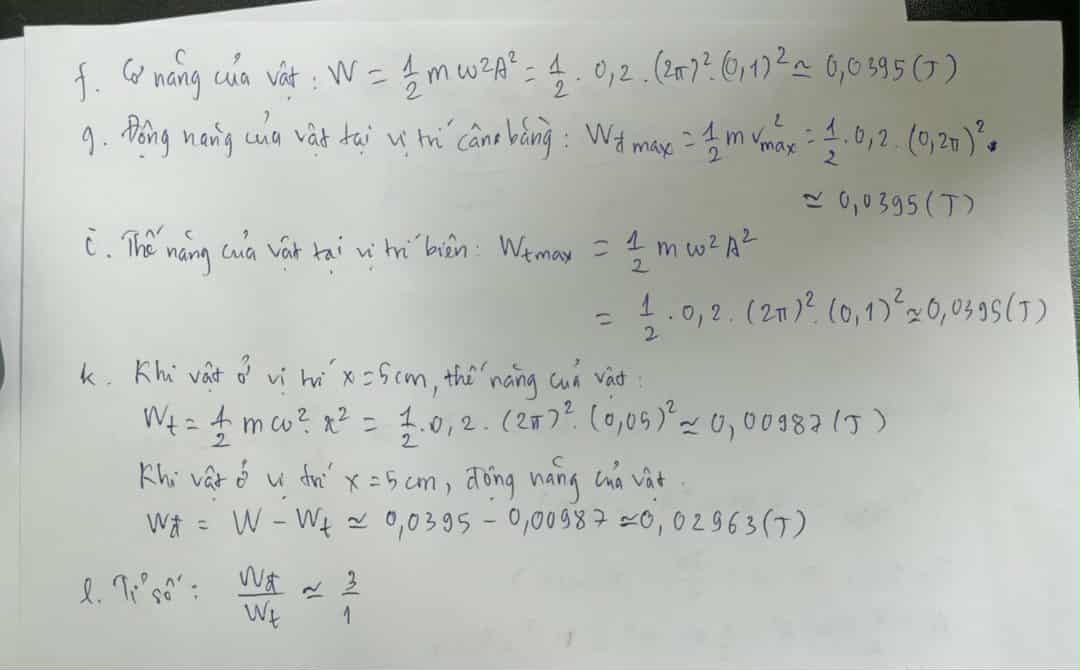 f. Cơ năng của vật : W = 1/2 m ω²A² = 1/2 . 0,2 . (2π)² . (0,1)² ≃ 0,0395 (J)
g. Động năng của vật tại vị trí cân bằng : Wđ max = 1/2 m v²max = 1/2 . 0,2 . (0,2π)² .
≃ 0,0395 (J)
i. Thế năng của vật tại vị trí biên : Wtmax = 1/2 m ω² A²
= 1/2 . 0,2 . (2π)² . (0,1)² ≃ 0,0395 (J)
k. Khi vật ở vị trí x = 5cm, thế năng của vật :
Wt = 1/2 m ω² . x² = 1/2 . 0,2 . (2π)² . (0,05)² ≃ 0,00987 (J)
Khi vật ở vị trí x = 5cm, động năng của vật .
Wđ = W - Wt ≃ 0,0395 - 0,00987 ≃ 0,02963 (J)
l. Tỉ số : Wđ/Wt ≃ 3/1